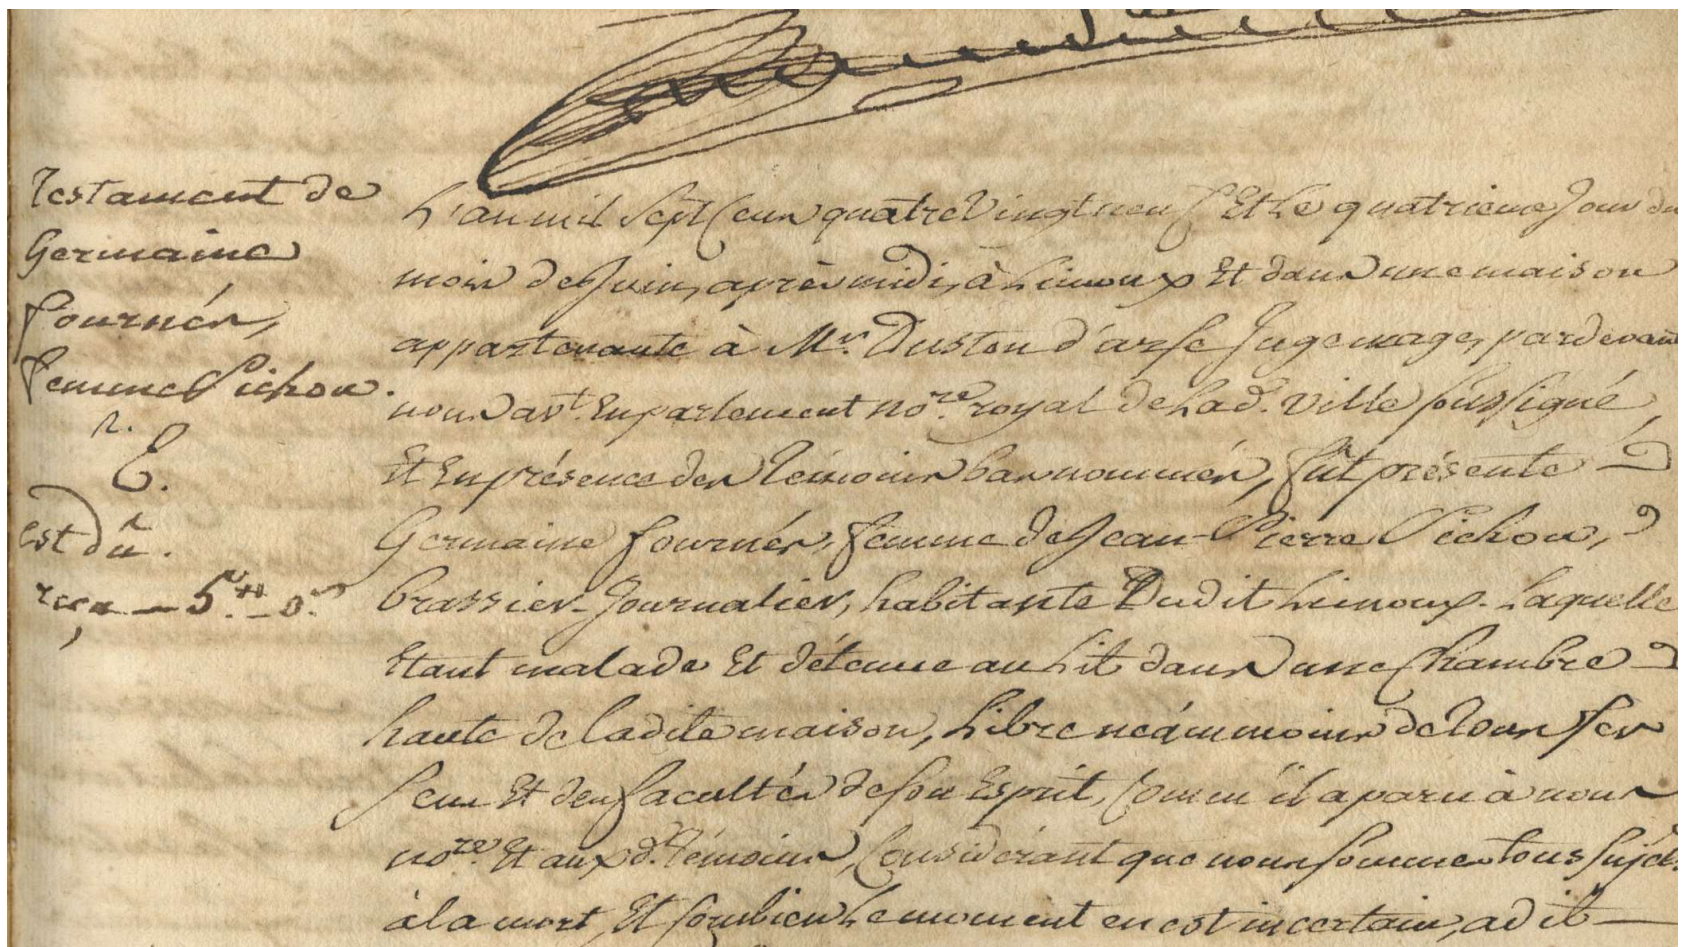 Testament de
Germaine
fournés,
femme Pichou.
2.
E.
Est dû.
reçu — 5.tt — s.
L'an mil Sept Cens quatre Vingt neuf Et Le quatrieme Jour du
mois de Juin, après midi, à Limoux Et dans une maison
appartenante à Mr. Duston d'arse Juge mage, pardevant
nous avt. En parlement nore. royal de Lad. ville soussigné
Et En présence des Témoins bas nommés, fût présente
Germaine fournés, femme de Jean-Pierre Pichou,
brassier-Journalier, habitante Dudit Limoux. Laquelle
Etant malade Et détenue au Lit dans une Chambre
haute de ladite maison, Libre néammoins de Tous ses
sens Et des facultés de son Esprit, Comm'il a paru à nous
nore. Et aux d. Témoins, Considérant que nous sommes tous sujets
à la mort, Et combien Le moment en est incertain, a dit